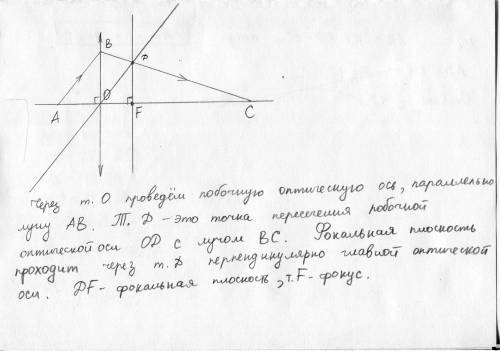 B
D
O
A
F
C
Через т. О проведём побочную оптическую ось, параллельно
лучу AB. Т. D – это точка пересечения побочной
оптической оси OD с лучом BC. Фокальная плоскость
проходит через т. D перпендикулярно главной оптической
оси. DF – фокальная плоскость, т. F – фокус.